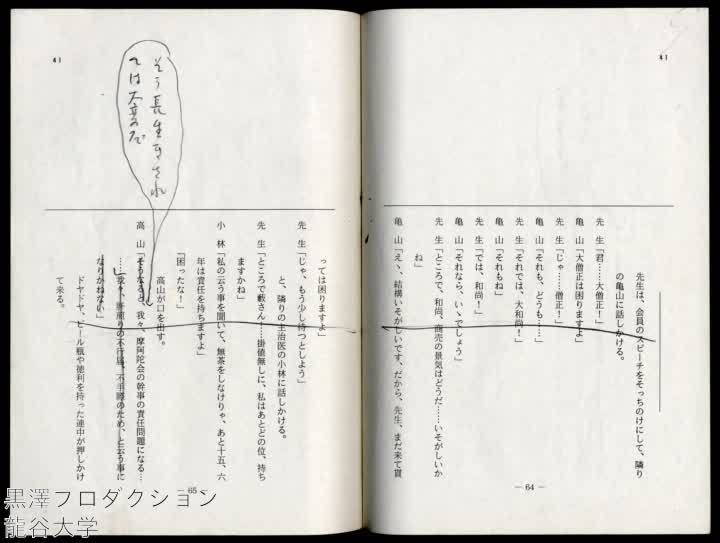 41
先生は、会員のスピーチをそっちのけにして、隣り
の亀山に話しかける。
先　生「君……大僧正！」
亀　山「大僧正は困りますよ」
先　生「じゃ……僧正！」
亀　山「それも、どうも……」
先　生「それでは、大和尚！」
亀　山「それもね」
先　生「では、和尚！」
亀　山「それなら、いゝでしょう」
先　生「ところで、和尚、商売の景気はどうだ……いそがしいか
ね」
亀　山「えゝ、結構いそがしいです、だから、先生、まだ来て貰
― 64 ―
41
っては困りますよ」
先　生「じゃ、もう少し待つとしよう」
と、隣りの主治医の小林に話しかける。
先　生「ところで藪さん……掛値無しに、私はあとどの位、持ち
ますかね」
小　林「私の云う事を聞いて、無茶をしなけりゃ、あと十五、六
年は責任を持ちますよ」
「困ったな！」
高山が口を出す。
高　山「そうなると、我々、摩阿陀会の幹事の責任問題になる…
…我々、肝煎りの不行届、不手際のため、と云う事に
なりかねない」
ドヤドヤ、ビール瓶や徳利を持った連中が押しかけ
て来る。
そう長生きされ
ては大変ので
65
黒澤プロダクション
龍谷大学